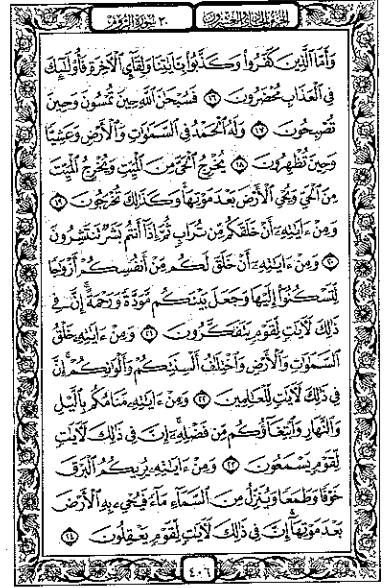 الجزء الحادي والعشرون ٣٠ سورة الروم
وَأَمَّا الَّذِينَ كَفَرُوا۟ وَكَذَّبُوا۟ بِـَٔايَـٰتِنَا وَلِقَآئِ الْـَٔاخِرَةِ فَأُو۟لَـٰٓئِكَ
فِى الْعَذَابِ مُحْضَرُونَ ١٦ فَسُبْحَـٰنَ اللَّهِ حِينَ تُمْسُونَ وَحِينَ
تُصْبِحُونَ ١٧ وَلَهُ الْحَمْدُ فِى السَّمَـٰوَٰتِ وَالْأَرْضِ وَعَشِيًّا
وَحِينَ تُظْهِرُونَ ١٨ يُخْرِجُ الْحَىَّ مِنَ الْمَيِّتِ وَيُخْرِجُ الْمَيِّتَ
مِنَ الْحَىِّ وَيُحْىِ الْأَرْضَ بَعْدَ مَوْتِهَا ۚ وَكَذَٰلِكَ تُخْرَجُونَ ١٩
وَمِنْ ءَايَـٰتِهِۦٓ أَنْ خَلَقَكُم مِّن تُرَابٍ ثُمَّ إِذَآ أَنتُم بَشَرٌ تَنتَشِرُونَ
٢٠ وَمِنْ ءَايَـٰتِهِۦٓ أَنْ خَلَقَ لَكُم مِّنْ أَنفُسِكُمْ أَزْوَٰجًا
لِّتَسْكُنُوٓا۟ إِلَيْهَا وَجَعَلَ بَيْنَكُم مَّوَدَّةً وَرَحْمَةً ۚ إِنَّ فِى
ذَٰلِكَ لَـَٔايَـٰتٍ لِّقَوْمٍ يَتَفَكَّرُونَ ٢١ وَمِنْ ءَايَـٰتِهِۦ خَلْقُ
السَّمَـٰوَٰتِ وَالْأَرْضِ وَاخْتِلَـٰفُ أَلْسِنَتِكُمْ وَأَلْوَٰنِكُمْ ۚ إِنَّ
فِى ذَٰلِكَ لَـَٔايَـٰتٍ لِّلْعَـٰلِمِينَ ٢٢ وَمِنْ ءَايَـٰتِهِۦ مَنَامُكُم بِالَّيْلِ
وَالنَّهَارِ وَابْتِغَآؤُكُم مِّن فَضْلِهِۦٓ ۚ إِنَّ فِى ذَٰلِكَ لَـَٔايَـٰتٍ
لِّقَوْمٍ يَسْمَعُونَ ٢٣ وَمِنْ ءَايَـٰتِهِۦ يُرِيكُمُ الْبَرْقَ
خَوْفًا وَطَمَعًا وَيُنَزِّلُ مِنَ السَّمَآءِ مَآءً فَيُحْىِۦ بِهِ الْأَرْضَ
بَعْدَ مَوْتِهَآ ۚ إِنَّ فِى ذَٰلِكَ لَـَٔايَـٰتٍ لِّقَوْمٍ يَعْقِلُونَ ٢٤
٤٠٦